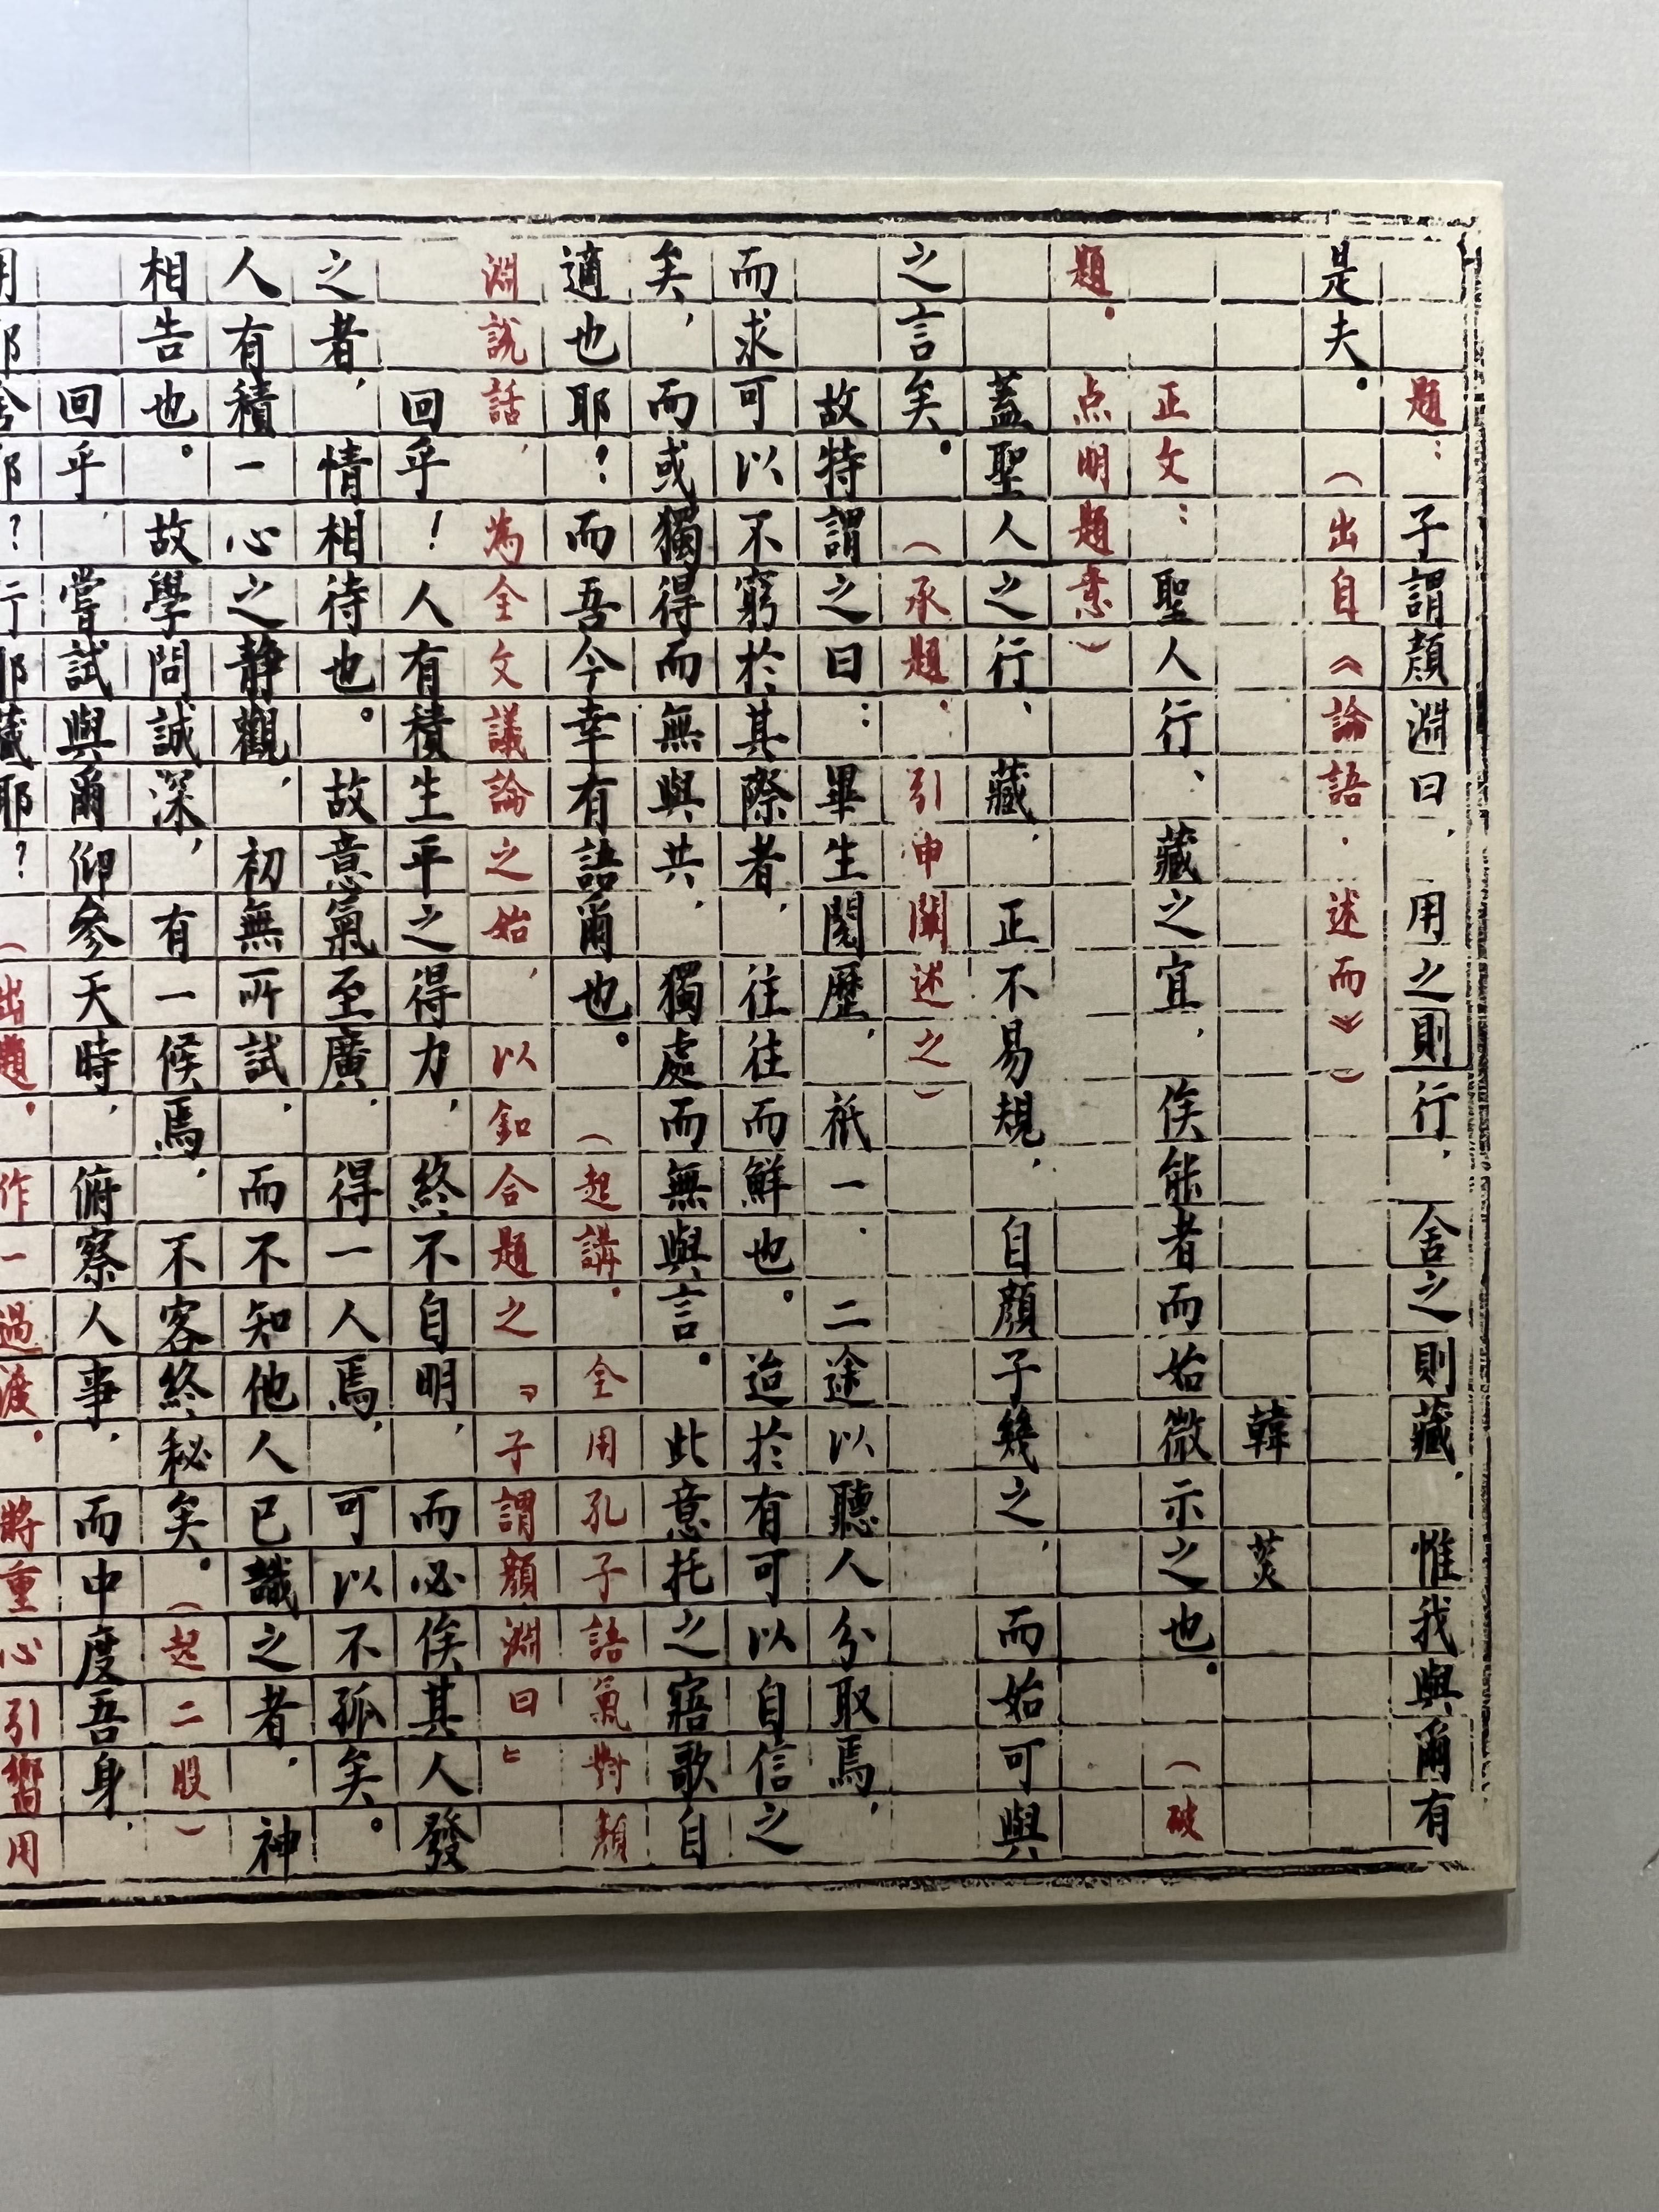 題：子謂顏淵曰，用之則行，舍之則藏，惟我與爾有
是夫。（出自《論語·述而》）
韓菼
正文：聖人行、藏之宜，俟能者而始微示之也。（破
題。点明題意）
蓋聖人之行、藏，正不易規，自顏子幾之，而始可與
之言矣。（承題．引申闡述之）
故特謂之曰：畢生閱歷，祇一．二途以聽人分取焉，
而求可以不窮於其際者，往往而鮮也。迨於有可以自信之
矣，而或獨得而無與共，獨處而無與言。此意托之寤歌自
適也耶？而吾今幸有語爾也。（起講。全用孔子語氣對顏
淵說話，為全文議論之始，以釦合題之『子謂顏淵曰』
回乎！人有積生平之得力，終不自明，而必俟其人發
之者，情相待也。故意氣至廣，得一人焉，可以不孤矣。
人有積一心之静觀，初無所試，而不知他人已識之者，神
相告也。故學問誠深，有一候焉，不容終秘矣。（起二股）
回乎，嘗試與爾仰參天時，俯察人事，而中度吾身，
用耶舍耶？行耶藏耶？（出題。作一過渡。將重心引嚮用